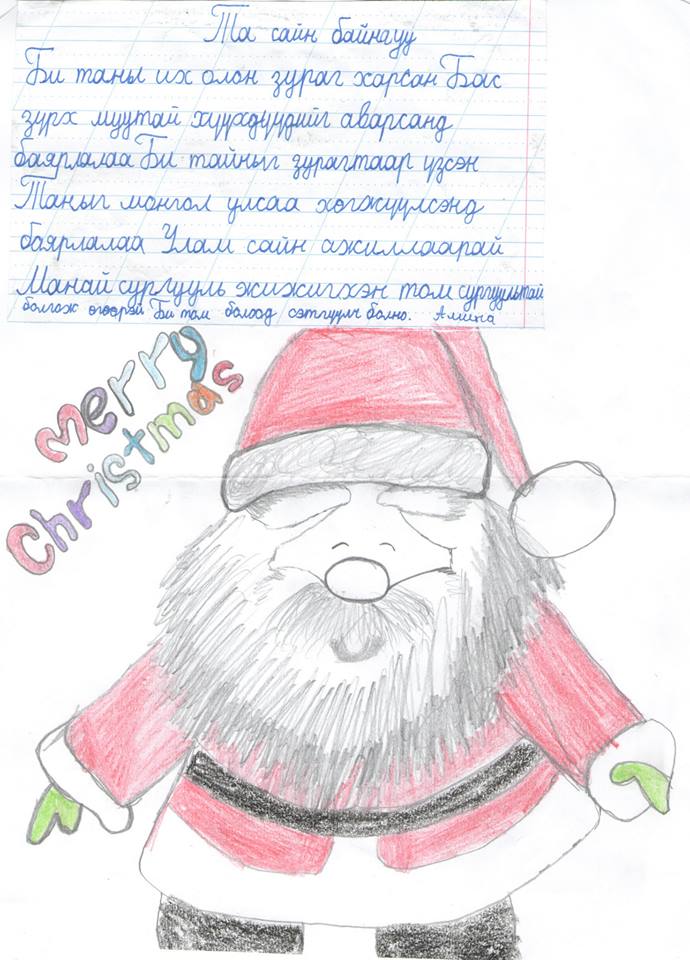 Та сайн байнауу
Би таны их олон зураг харсан Бас
зүрх муутай хүүхдүүдийг аварсанд
баярлалаа Би тайныг зурагтаар үзсэн
Таныг монгол улсаа хөгжүүлсэнд
баярлалаа Улам сайн ажиллаарай
Манай сургууль жижигхэн том сургуультай
болгож өгөөрэй Би том болоод сэтгүүлч болно. Алина
Merry
Christmas